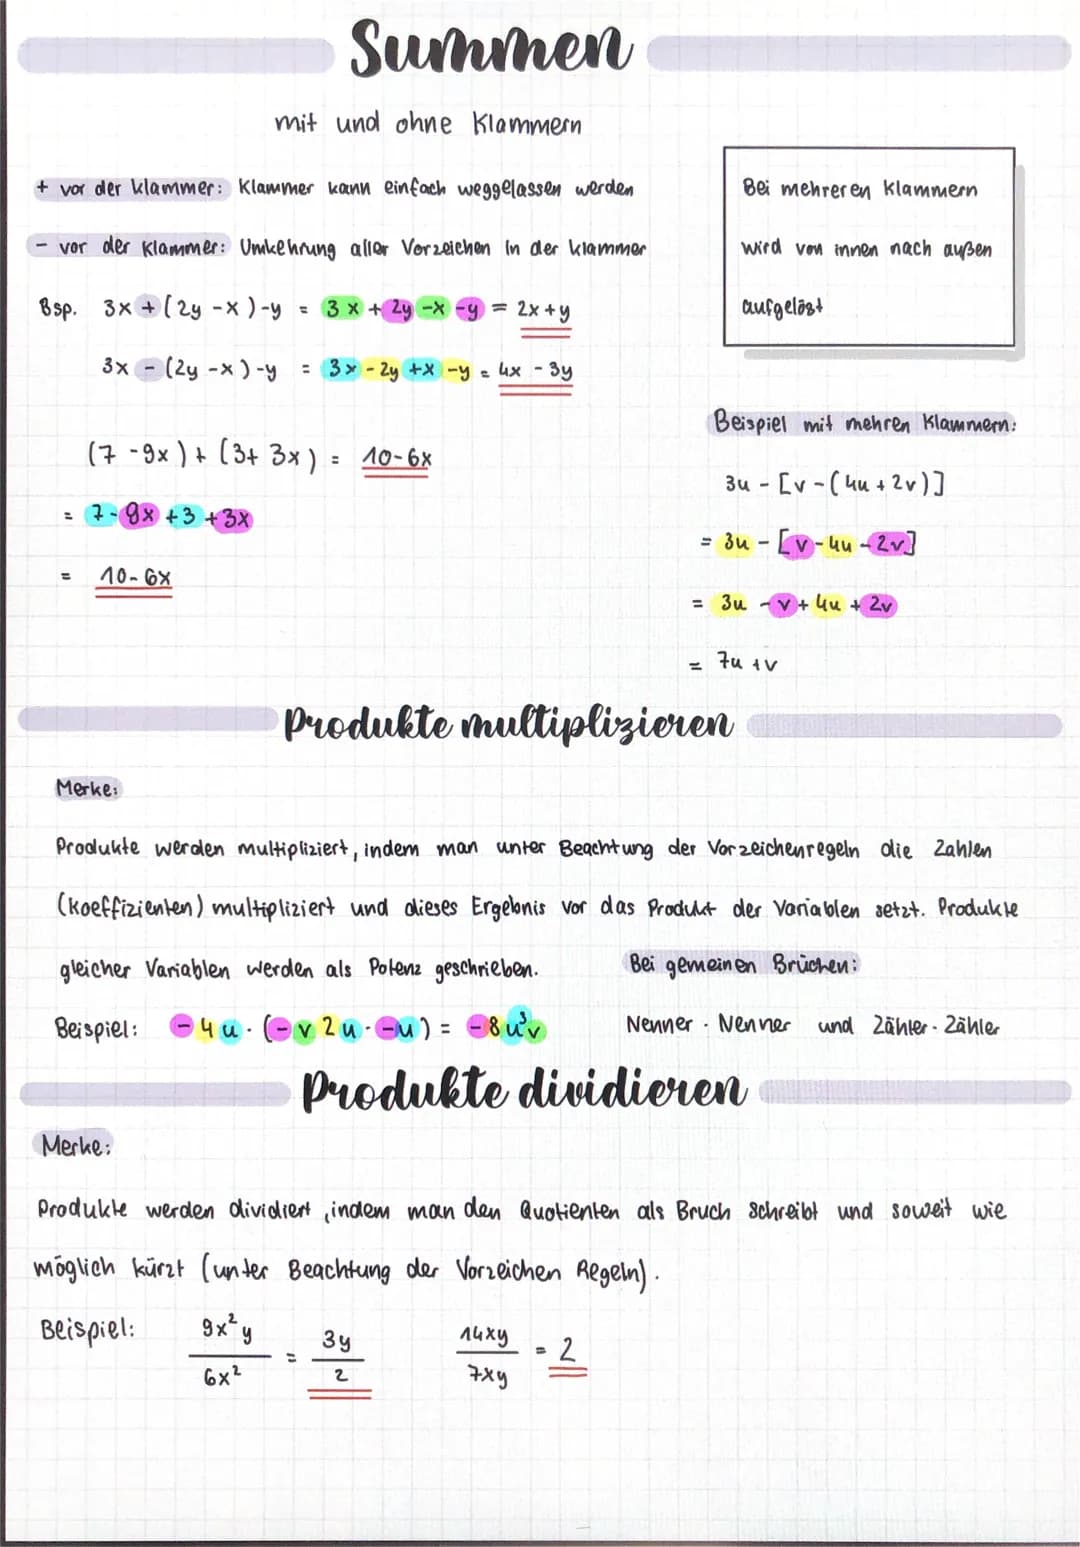 Summen
mit und ohne Klammern
+ vor der Klammer: Klammer kann einfach weggelassen werden
- vor der Klammer: Umkehrung aller Vorzeichen in der Klammer
Bsp. 3x + (2y - x) - y = 3x + 2y - x - y = 2x + y
3x - (2y - x) - y = 3x - 2y + x - y = 4x - 3y
(7 - 9x) + (3 + 3x) = 10 - 6x
= 7 - 9x + 3 + 3x
= 10 - 6x
Bei mehreren Klammern
wird von innen nach außen
aufgelöst
Beispiel mit mehren Klammern:
3u - [v - (4u + 2v)]
= 3u - [v - 4u - 2v]
= 3u - v + 4u + 2v
= 7u + v
Produkte multiplizieren
Merke:
Produkte werden multipliziert, indem man unter Beachtung der Vorzeichenregeln die Zahlen
(Koeffizienten) multipliziert und dieses Ergebnis vor das Produkt der Variablen setzt. Produkte
gleicher Variablen werden als Potenz geschrieben.
Beispiel: -4u · (-v 2u · -u) = -8u³v
Bei gemeinen Brüchen:
Nenner · Nenner und Zähler · Zähler
Produkte dividieren
Merke:
Produkte werden dividiert, indem man den Quotienten als Bruch schreibt und soweit wie
möglich kürzt (unter Beachtung der Vorzeichen Regeln).
Beispiel: 9x²y / 6x² = 3y / 2 14xy / 7xy = 2